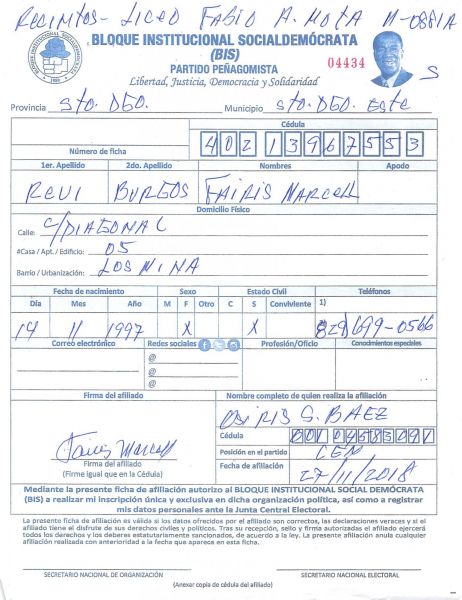 Recintos- Liceo Fabio A. Mota M-0881A
BLOQUE INSTITUCIONAL SOCIALDEMÓCRATA
(BIS)
PARTIDO PEÑAGOMISTA
04434
Libertad, Justicia, Democracia y Solidaridad
S
Provincia Sto. Dgo. Municipio Sto. Dgo. Este
Cédula
Número de ficha 402 1396755 3
1er. Apellido 2do. Apellido Nombres Apodo
REVI BURGOS FAIRIS MARCELL
Domicilio Físico
Calle: C/DIAGONAL
#Casa / Apt. / Edificio: 05
Barrio / Urbanización: LOS MINA
Fecha de nacimiento Sexo Estado Civil Teléfonos
Día Mes Año M F Otro C S Conviviente 1)
14 11 1997 X X 829 699-0566
Correo electrónico Redes sociales Profesión/Oficio Conocimientos especiales
@
@
@
Firma del afiliado Nombre completo de quien realiza la afiliación
OSIRIS G. BAEZ
Cédula
Fairis Marcell
Posición en el partido CEN
Firma del afiliado
(Firme igual que en la Cédula)
Fecha de afiliación 27/11/2018
Mediante la presente ficha de afiliación autorizo al BLOQUE INSTITUCIONAL SOCIAL DEMÓCRATA
(BIS) a realizar mi inscripción única y exclusiva en dicha organización política, así como a registrar
mis datos personales ante la Junta Central Electoral.
La presente ficha de afiliación es válida si los datos ofrecidos por el afiliado son correctos, las declaraciones veraces y si el
afiliado tiene el disfrute de sus derechos civiles y políticos. Tras su recepción, sello y firma autorizadas el afiliado ejercerá
todos los derechos y los deberes estatutariamente sancionados, de acuerdo a la ley. La presente afiliación anula cualquier
afiliación realizada con anterioridad a la fecha que aparece en esta ficha.
SECRETARIO NACIONAL DE ORGANIZACIÓN SECRETARIO NACIONAL ELECTORAL
(Anexar copia de cédula del afiliado)